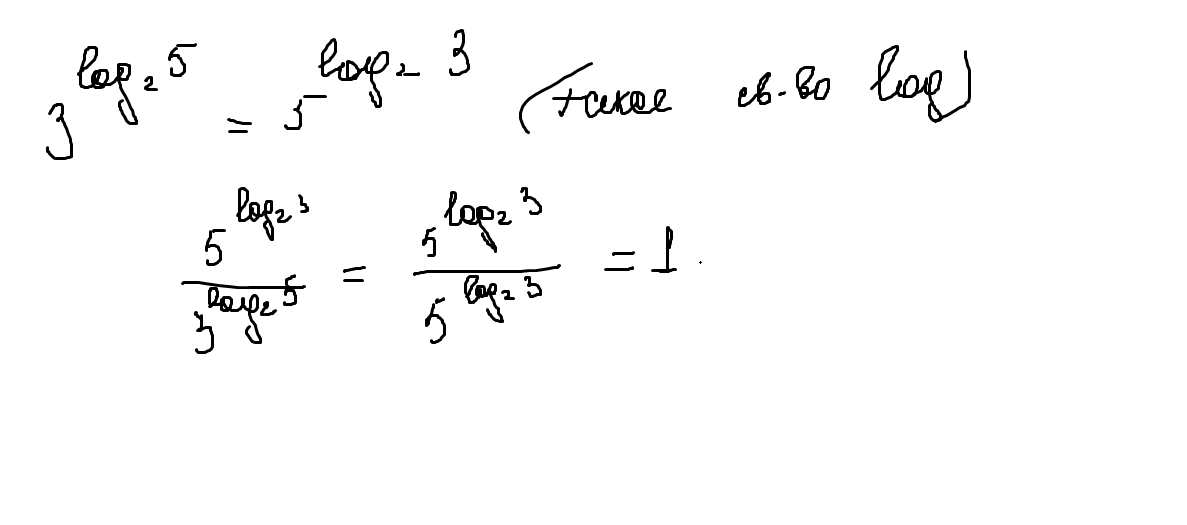 3^{log₂ 5} = 5^{log₂ 3} (такое св-во log)
\frac{5^{log₂ 3}}{3^{log₂ 5}} = \frac{5^{log₂ 3}}{5^{log₂ 3}} = 1.